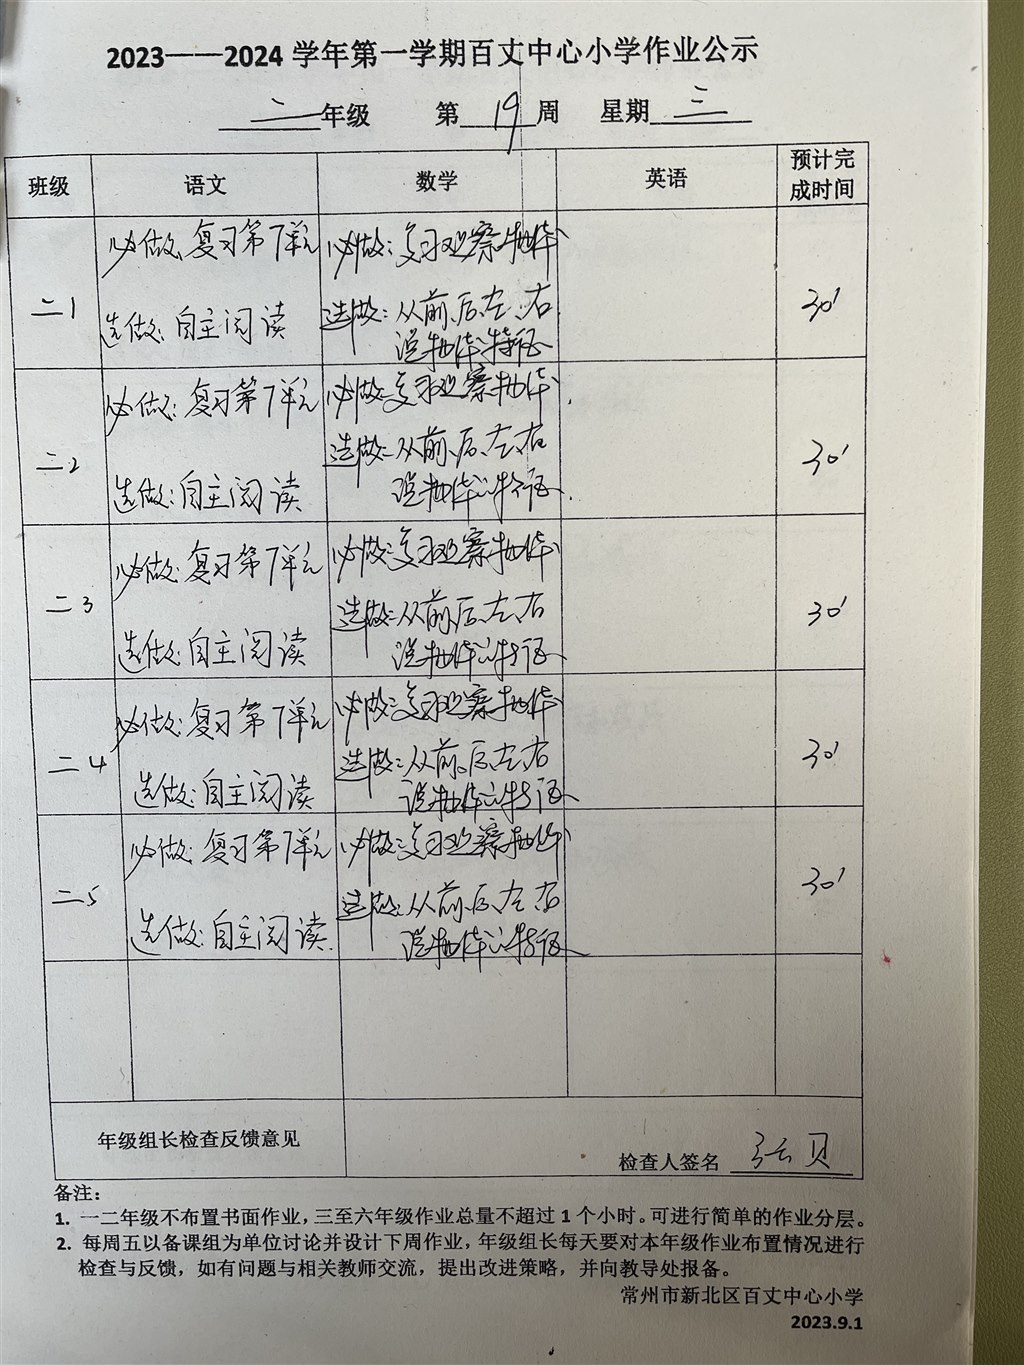 2023——2024 学年第一学期百丈中心小学作业公示
二年级 第 19 周 星期 三
班级 语文 数学 英语 预计完成时间
二1 必做：复习第7单元 必做：复习观察物体 30'
选做：自主阅读 选做：从前、后、左、右
说物体特征
二2 必做：复习第7单元 必做：复习观察物体. 30'
选做：自主阅读 选做：从前、后、左、右
说物体的特征.
二3 必做：复习第7单元 必做：复习观察物体 30'
选做：自主阅读 选做：从前、后、左、右
说物体的特征
二4 必做：复习第7单元 必做：复习观察物体 30'
选做：自主阅读 选做：从前、后、左、右
说物体的特征
二5 必做：复习第7单元 必做：复习观察物体 30'
选做：自主阅读. 选做：从前、后、左、右
说物体的特征
年级组长检查反馈意见
检查人签名 张贝
备注：
1. 一二年级不布置书面作业，三至六年级作业总量不超过 1 个小时。可进行简单的作业分层。
2. 每周五以备课组为单位讨论并设计下周作业，年级组长每天要对本年级作业布置情况进行
检查与反馈，如有问题与相关教师交流，提出改进策略，并向教导处报备。
常州市新北区百丈中心小学
2023.9.1